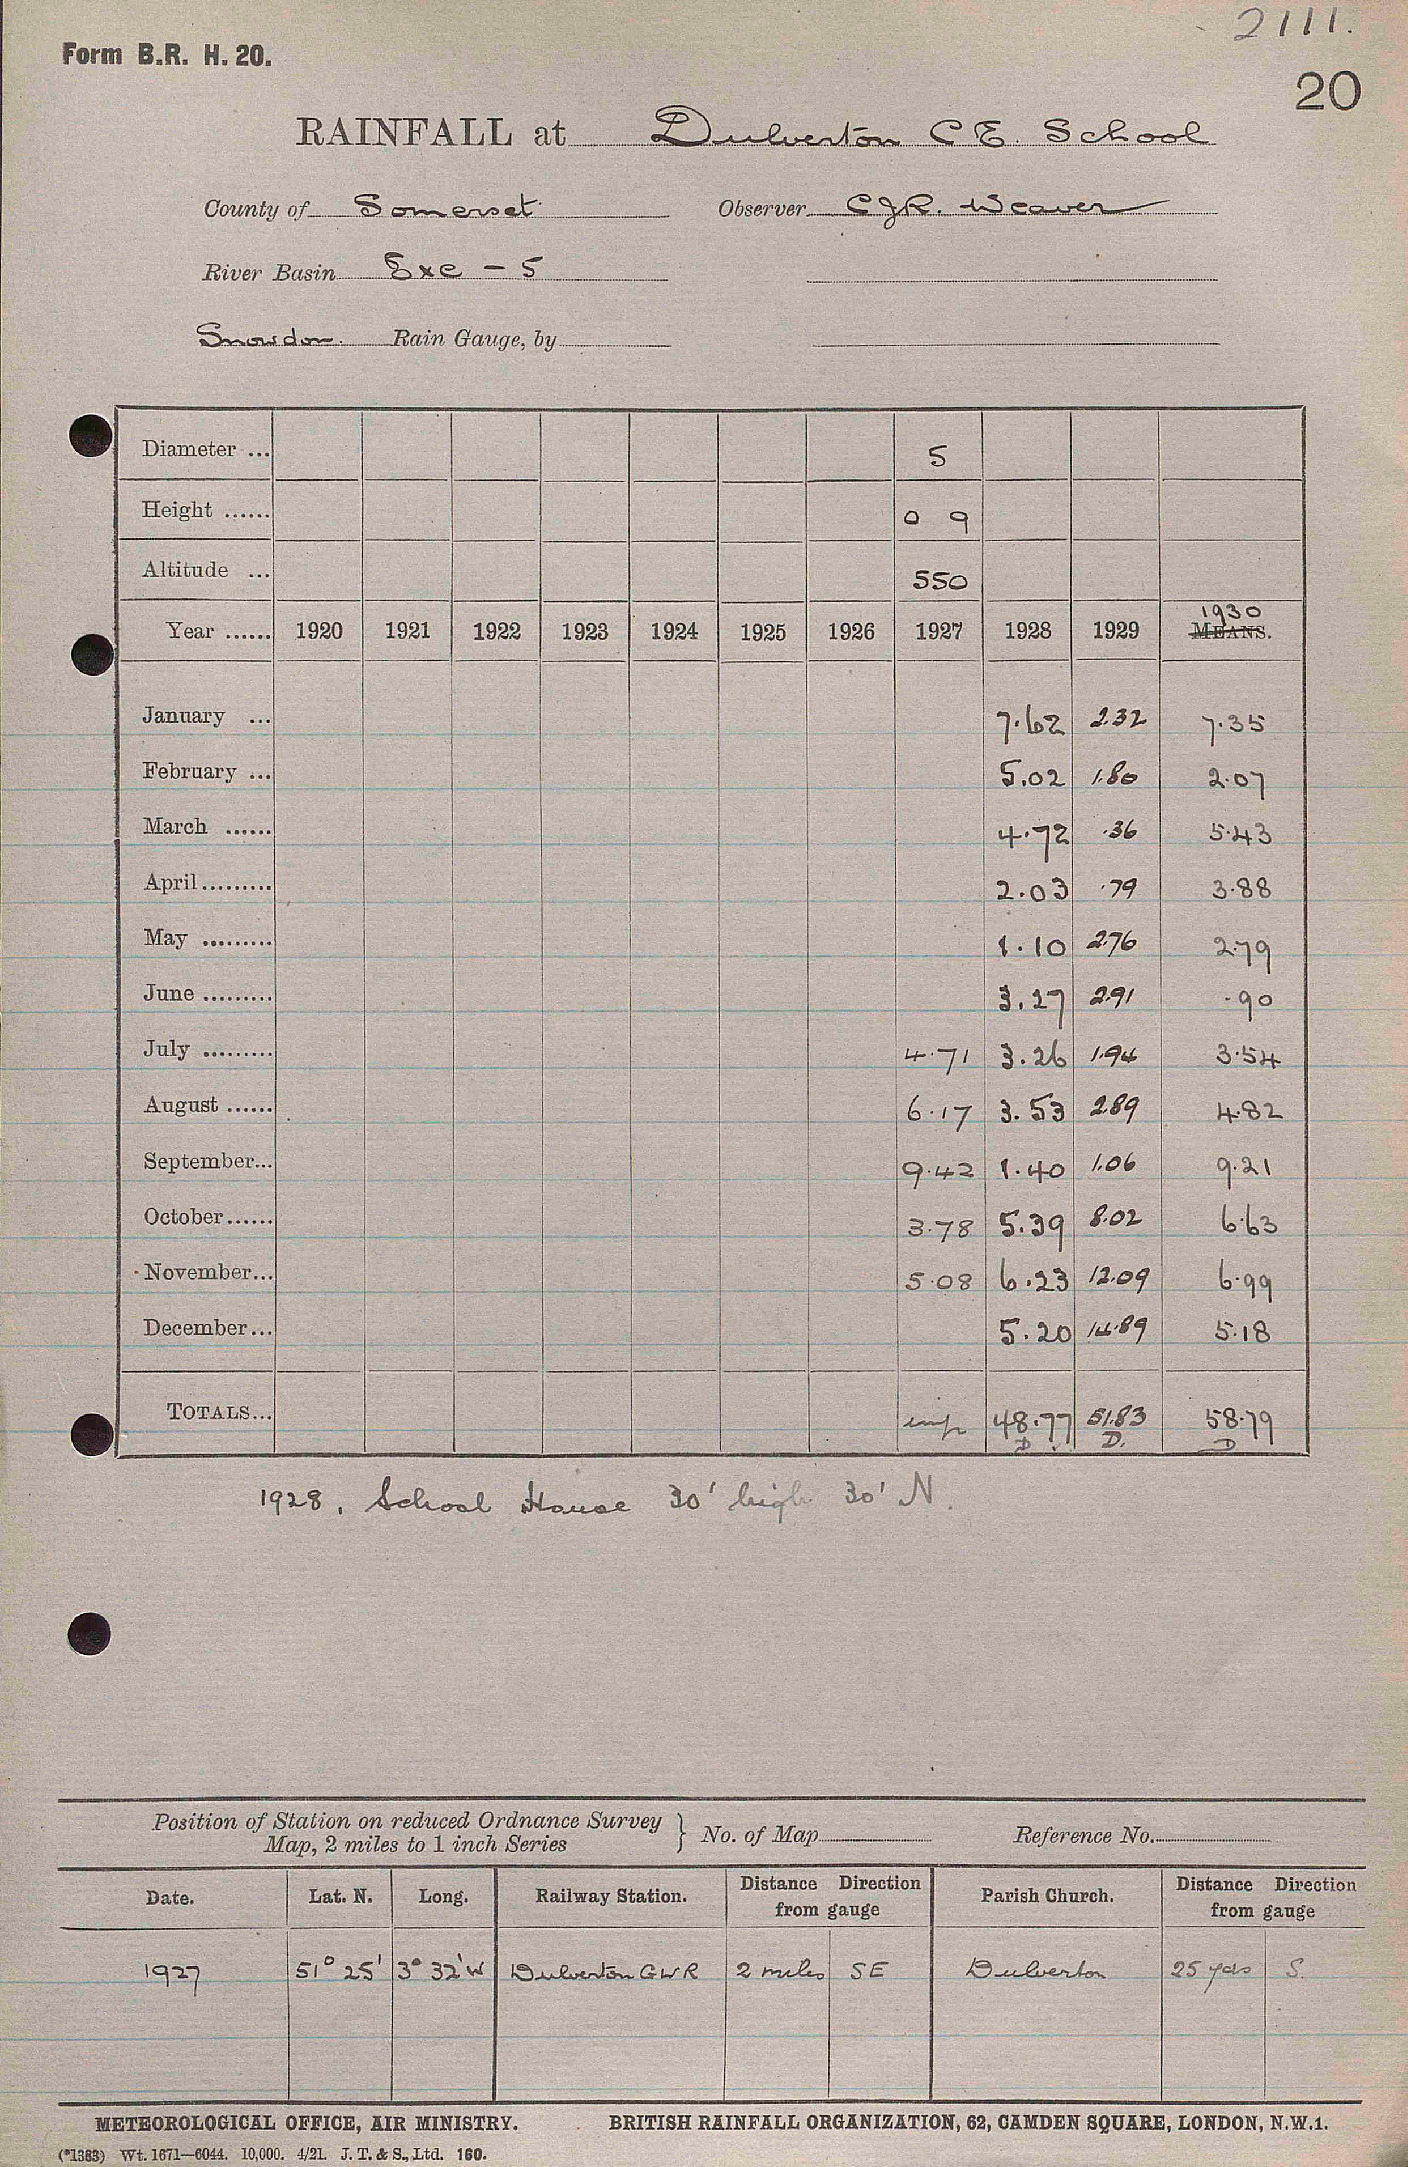 2111.
Form B.R. H. 20.
20
RAINFALL at Dulverton C E. School
County of Somerset Observer CJR. Weaver
River Basin Exe - 5
Snowdon. Rain Gauge, by
Diameter ... 5
Height ...... 0 9
Altitude ... 550
Year ...... 1920 1921 1922 1923 1924 1925 1926 1927 1928 1929 1930 MEANS.
January ... 7.62 2.32 7.35
February ... 5.02 1.80 2.07
March ...... 4.72 .36 5.43
April......... 2.03 .79 3.88
May ......... 1.10 2.76 2.79
June ......... 3.27 2.91 .90
July ......... 4.71 3.26 1.94 3.54
August ...... 6.17 3.53 2.89 4.82
September... 9.42 1.40 1.06 9.21
October...... 3.78 5.39 8.02 6.63
November... 5.08 6.23 12.09 6.99
December... 5.20 14.89 5.18
TOTALS... imp 48.77 51.83 58.79
D D. D
1928. School House 30' high 30' N.
Position of Station on reduced Ordnance Survey
Map, 2 miles to 1 inch Series } No. of Map Reference No.
Date. Lat. N. Long. Railway Station. Distance Direction from gauge Parish Church. Distance Direction from gauge
1927 51° 25' 3° 32' W Dulverton GWR 2 miles SE Dulverton 25 yds S.
METEOROLOGICAL OFFICE, AIR MINISTRY. BRITISH RAINFALL ORGANIZATION, 62, CAMDEN SQUARE, LONDON, N.W.1.
(*1383) Wt. 1671—6044. 10,000. 4/21. J. T. & S., Ltd. 160.